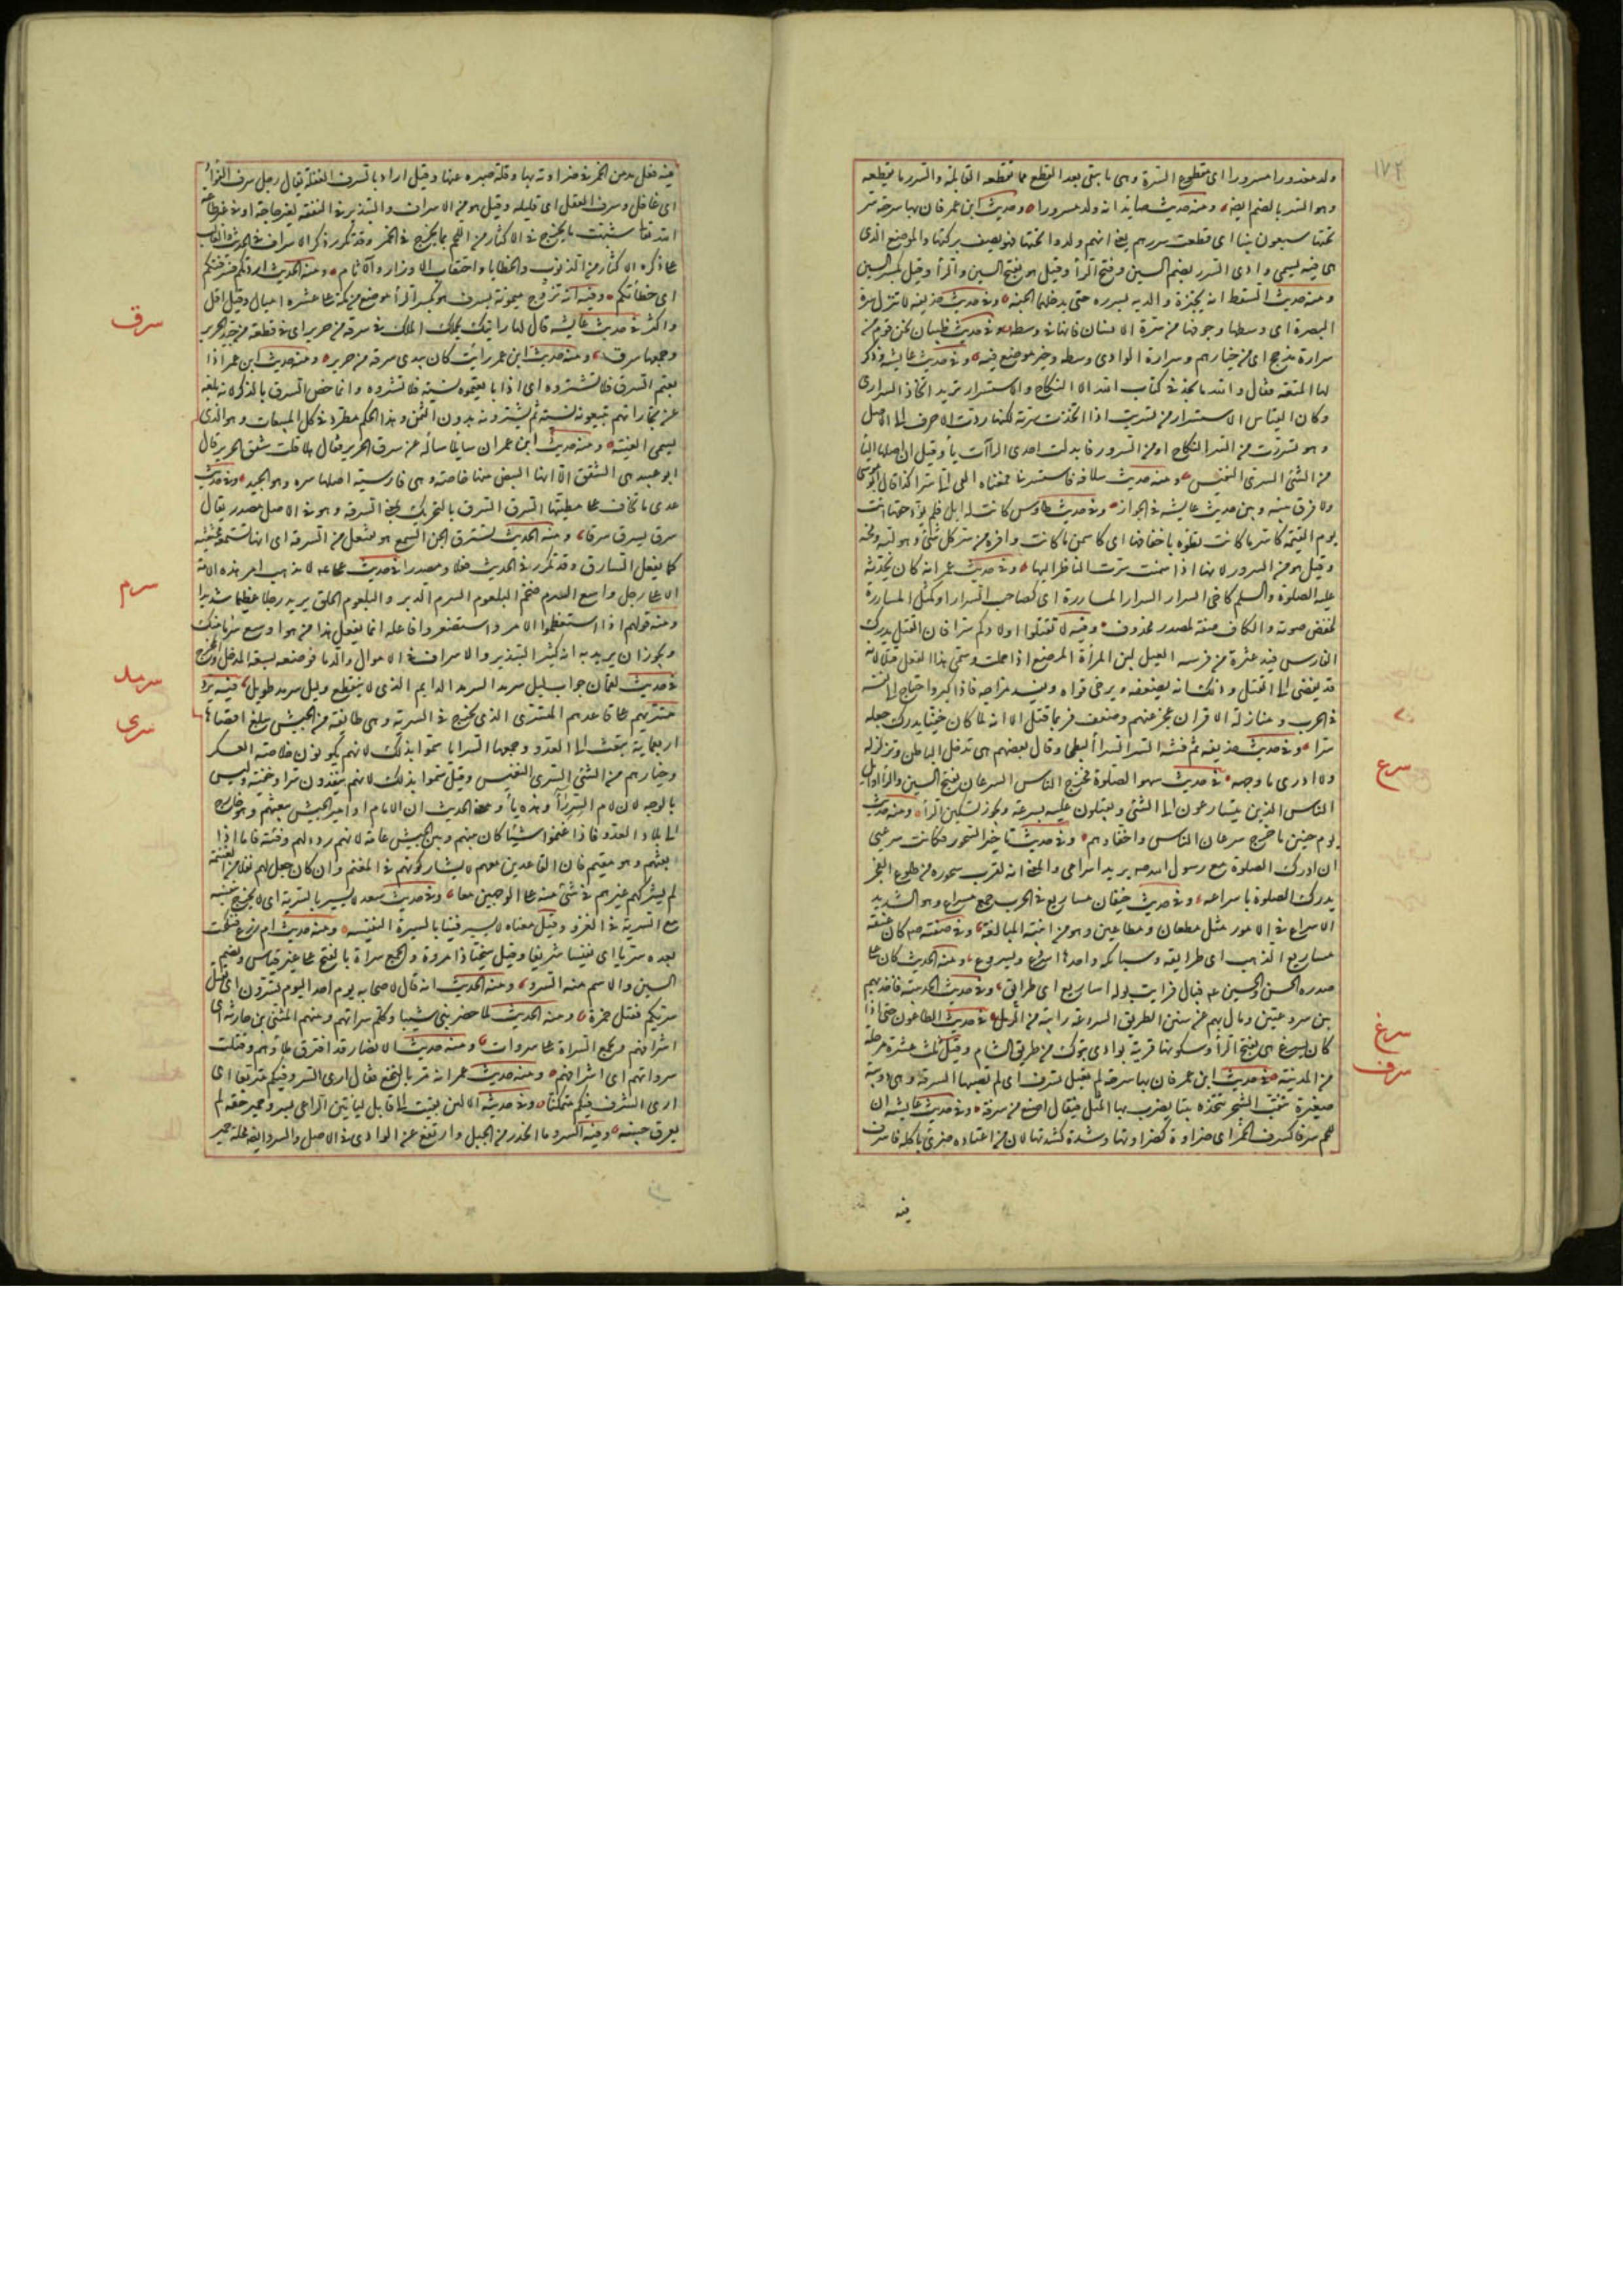 ١٧٢
ولد معذورا مسرورا اى مقطوع السرة وهى ما يبقى بعد القطع مما تقطعه القابلة والسرر ما تقطعه
وهو السر بالضم ايضا ومنه حديث صايد انه ولد مسرورا وحديث ابن عمر فان بها سرحة سر
تحتها سبعون نبيا اى قطعت سررهم يعنى انهم ولدوا تحتها فهو يصف بركتها والموضع الذى
هى فيه يسمى وادى السرر بضم السين وفتح الرأ وقيل هو بفتح السين والرأ وقيل بكسر السين
ومنه حديث السقط انه يجتر والديه بسرره حتى يدخلهما الجنة وفى حديث حذيفة لا تنزل سرة
البصرة اى وسطها وجوفها من سرة الانسان فانها فى وسطه وفى حديث ظبيان نحن قوم من
سرارة مذحج اى من خيارهم وسرارة الوادى وسطه وخير موضع فيه وفى حديث عايشة وذكر
لها المتعة فقال والله ما نجد فى كتاب الله الا النكاح والاستسرار تريد اتخاذ السرارى
وكان القياس الاستسرار من تسريت اذا اتخذت سرية لكنها ردت الحرف الى الاصل
وهو تسررت من السر النكاح او من السرور فابدلت احدى الرآت يأ وقيل ان اصلها اليأ
من الشئ السرى النفيس ومنه حديث سلامة فاستسرنى ممعناه اتخذنى سرا كذا قال ابو موسى
ولا فرق بينه وبين حديث عايشة فى الجواز وفى حديث طاوس من كانت له ابل فلم يؤد حقها اتت
يوم القيمة كاسر ما كانت تطؤه باخفافها اى كاسمن ما كانت واوفره من سر كل شئ وهو لبه ومخه
وقيل هو من السرور لانها اذا سمنت سرت الناظر اليها وفى حديث عمر انه كان يحدثه
عليه الصلوة والسلم كاخى السرار السرار المساررة اى كصاحب السرار او كمثل المساررة
لخفض صوته والكاف صفة لمصدر محذوف وفيه لا تقتلوا اولادكم سرا فان الغيل يدرك
الفارس فيدعثره من فرسه الغيل لبن المرأة المرضع اذا حملت وسمى هذا الفعل قتلا لانه
قد يفضى الى القتل وذلك انه يضعفه ويرخى قواه ويفسد مزاجه فاذا كبر واحتاج الى نفسه
فى الحرب ومنازلة الاقران عجز عنهم وضعف فربما قتل الا انه لما كان خفيا يدرك جعله
سرا وفى حديث حذيفة ثم فتنة السرا السرأ البطحى وقال بعضهم هى تدخل الباطن وتزلزله
ولا ادرى ما وجهه فى حديث سهو الصلوة فخرج الناس السرعان بفتح السين والرأ اوايل
الناس الذين يتسارعون الى الشئ ويقبلون عليه بسرعة ويجوز تسكين الرأ ومنه حديث
يوم حنين فاخرج سرعان الناس واخفاؤهم وفى حديث تاخير السحور فكانت سرعتى
ان ادرك الصلوة مع رسول الله صم يريد اسراعى والمعنى انه لقرب سحوره من طلوع الفجر
يدرك الصلوة باسراعه وفى حديث خيفان مساريع فى الحرب جمع مسراع وهو الشديد
الاسراع فى الامور مثل مطعان ومطاعين وهو من ابنية المبالغة وفى صفته صم كان عنقه
اساريع الذهب اى طرايقه وسبايكه واحدها اسروع ويسروع ومنه الحديث كان على
صدره الحسن والحسين عم فبال فرايت بوله اساريع اى طرايق وفى حديث الحديبية فاخذ بهم
بين سروعتين ومال بهم عن سنن الطريق السروعة رابية من الرمل فى حديث الطاعون حتى اذا
كان بسرغ هى بفتح الرأ وسكونها قرية بوادى تبوك من طريق الشام وقيل ثلث عشرة مرحلة
من المدينة فى حديث ابن عمر فان بها سرحة لم تعبل لم تسرف اى لم يصبها السرفة وهى دويبة
صغيرة تثقب الشجر تتخذه بيتا يضرب بها المثل فيقال اصنع من سرفة وفى حديث عايشة ان
للحم سرفا كسرف الخمر اى ضراوة كضراوتها وشدة كشدتها لان من اعتاده ضرى باكله فاسرف
فيه
سرع
سرغ
سرف
فيه فعل مدمن الخمر فى ضراوته بها وقلة صبره عنها وقيل اراد بالسرف الغفلة يقال رجل سرف الفؤاد
اى غافل وسرف العقل اى قليله وقيل هو من الاسراف والتبذير فى النفقة لغير حاجة او فى غير طاعة
الله تعا شبهت ما يخرج فى الاكثار من اللحم بما يخرج فى الخمر وقد تكرر ذكر الاسراف فى الحديث والغالب
على ذكره الاكثار من الذنوب والخطايا واحتقاب الاوزار والآثام ومنه الحديث اردتكم فسرفتكم
اى اخطأتكم وفيه انه تزوج ميمونة بسرف هو بكسر الرأ موضع من مكة على عشرة اميال وقيل اقل
واكثر فى حديث عايشة قال لها رايتك يحملك الملك فى سرقة من حرير اى فى قطعة من جيد الحرير
وجمعها سرق ومنه حديث ابن عمر رايت كان بيدى سرقة من حرير ومنه حديث ابن عمر اذا
بعتم السرق فلا تشتروه اى اذا بايعتموه نسية فلا تشتروه وانما خص السرق بالذكر لانه بلغه
عن تجار انهم يبيعونه نسية ثم يشترونه بدون الثمن وهذا الحكم مطرد فى كل المبيعات وهو الذى
يسمى العينة ومنه حديث ابن عمر ان سايلا سأله عن سرق الحرير فقال هلا قلت شقق الحرير قال
ابو عبيد هى الشقق الا انها البيض منها خاصة وهى فارسية اصلها سره وهو الجيد وفى حديث
عدى ما تخاف على مطيتها السرق السرق بالتحريك بمعنى السرقة وهو فى الاصل مصدر يقال
سرق يسرق سرقا ومنه الحديث تسترق الجن السمع هو تفتعل من السرقة اى انها تستمعه مختفية
كما يفعل السارق وقد تكرر فى الحديث فعلا ومصدرا فى حديث على لا يذهب امر هذه الامة
الا على رجل واسع السرم ضخم البلعوم السرم الدبر والبلعوم الحلق يريد رجلا عظيما شديدا
ومنه قولهم اذا استعظموا الامر واستصغروا فاعله انما يفعل هذا من هو اوسع سرما منك
ويجوز ان يريد به انه كثير التبذير والاسراف فى الاموال والدما فوصفه بسعة المدخل والمخرج
فى حديث لقمان جواب ليل سرمد السرمد الدايم الذى لا ينقطع وليل سرمد طويل فيه يرد
متسريهم على قاعدهم المتسرى الذى يخرج فى السرية وهى طايفة من الجيش يبلغ اقصاها
اربعماية تبعث الى العدو وجمعها السرايا سموا بذلك لانهم يكونون خلاصة العسكر
وخيارهم من الشئ السرى النفيس وقيل سموا بذلك لانهم ينفذون سرا وخفية وليس
بالوجه لان لام السر رأ وهذه يأ ومعنى الحديث ان الامام او امير الجيش يبعثهم وهو خارج
الى بلاد العدو فاذا غنموا شيئا كان بينهم وبين الجيش عامة لانهم ردء لهم وفئة فاما اذا
بعثهم وهو مقيم فان القاعدين معهم لا يشاركونهم فى المغنم وان كان جعل لهم نفلا من الغنيمة
لم يشركهم غيرهم فى شئ منه على الوجهين معا وفى حديث سعد لا يسير بالسرية اى لا يخرج بنفسه
مع السرية فى الغزو وقيل معناه لا يسير فينا بالسيرة النفيسة ومنه حديث ام زرع فنكحت
بعده سريا اى نفيسا شريفا وقيل سخيا ذا مروة والجمع سراة بالفتح على غير قياس وبضم
السين والاسم منه السرو ومنه الحديث انه قال لاصحابه يوم احد اليوم تسرون اى يقتل
سريكم فقتل حمزة ومنه الحديث لما حضر بنى شيبان وكلم سراتهم ومنهم المثنى بن حارثة اى
اشرافهم وتجمع السراة على سروات ومنه حديث الانصار قد افترق ملاؤهم وقتلت
سرواتهم اى اشرافهم ومنه حديث عمر انه مر بالنخع فقال ارى السرو فيكم متربعا اى
ارى الشرف فيكم متمكنا وفى حديثه الاخر لئن بقيت الى قابل ليأتين الراعى بسرو حمير حقه لم
يعرق جبينه وفيه السرو ما انحدر من الجبل وارتفع عن الوادى فى الاصل والسرو ايضا محلة حمير
سرق
سرم
سرمد
سرى